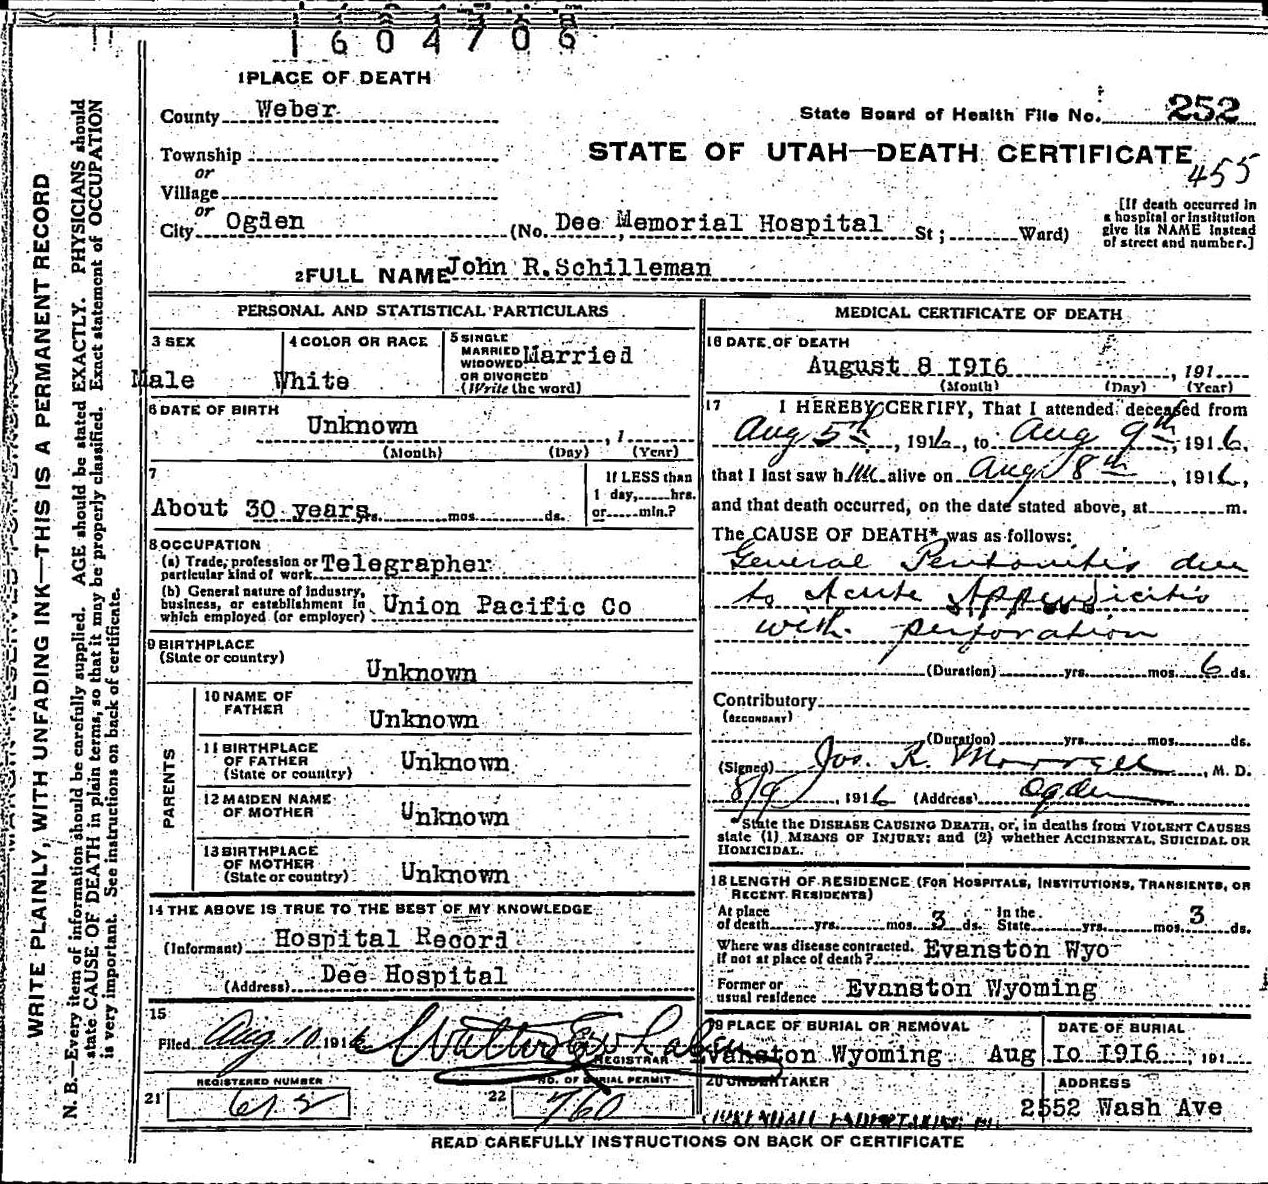 1 6 0 4 7 0 6
1 PLACE OF DEATH
County Weber
State Board of Health File No. 252
Township
or
Village
or
City Ogden
STATE OF UTAH—DEATH CERTIFICATE
455
(No. Dee Memorial Hospital St; Ward)
[If death occurred in
a hospital or institution
give its NAME instead
of street and number.]
2 FULL NAME John R. Schilleman
PERSONAL AND STATISTICAL PARTICULARS
3 SEX
Male
4 COLOR OR RACE
White
5 SINGLE
MARRIED
WIDOWED
OR DIVORCED
(Write the word)
Married
6 DATE OF BIRTH
Unknown , 1
(Month) (Day) (Year)
7
About 30 years yrs. mos. ds.
If LESS than
1 day, hrs.
or min.?
8 OCCUPATION
(a) Trade, profession or
particular kind of work Telegrapher
(b) General nature of industry,
business, or establishment in
which employed (or employer) Union Pacific Co
9 BIRTHPLACE
(State or country)
Unknown
PARENTS
10 NAME OF
FATHER
Unknown
11 BIRTHPLACE
OF FATHER
(State or country)
Unknown
12 MAIDEN NAME
OF MOTHER
Unknown
13 BIRTHPLACE
OF MOTHER
(State or country)
Unknown
14 THE ABOVE IS TRUE TO THE BEST OF MY KNOWLEDGE
(Informant) Hospital Record
(Address) Dee Hospital
15
Filed Aug 10 1916
REGISTRAR
REGISTERED NUMBER
21 612
NO. OF BURIAL PERMIT
22 760
MEDICAL CERTIFICATE OF DEATH
16 DATE OF DEATH
August 8 1916 , 191
(Month) (Day) (Year)
17 I HEREBY CERTIFY, That I attended deceased from
Aug 5th , 1916, to Aug 9th 1916,
that I last saw him alive on Aug 8th , 1916,
and that death occurred, on the date stated above, at m.
The CAUSE OF DEATH* was as follows:
General Peritonitis due
to Acute Appendicitis
with perforation
(Duration) yrs. mos. 6 ds.
Contributory
(SECONDARY)
(Duration) yrs. mos. ds.
(Signed) Jos. R. Morrell , M. D.
8/9 , 1916 (Address) Ogden
*State the DISEASE CAUSING DEATH, or, in deaths from VIOLENT CAUSES
state (1) MEANS OF INJURY; and (2) whether ACCIDENTAL, SUICIDAL OR
HOMICIDAL.
18 LENGTH OF RESIDENCE (FOR HOSPITALS, INSTITUTIONS, TRANSIENTS, OR
RECENT RESIDENTS)
At place
of death yrs. mos. 3 ds. In the
State yrs. mos. 3 ds.
Where was disease contracted.
If not at place of death? Evanston Wyo
Former or
usual residence Evanston Wyoming
19 PLACE OF BURIAL OR REMOVAL
Evanston Wyoming
DATE OF BURIAL
Aug 10 1916 , 191
20 UNDERTAKER
ADDRESS
2552 Wash Ave
READ CAREFULLY INSTRUCTIONS ON BACK OF CERTIFICATE
WRITE PLAINLY, WITH UNFADING INK—THIS IS A PERMANENT RECORD
N. B.—Every item of information should be carefully supplied. AGE should be stated EXACTLY. PHYSICIANS should
state CAUSE OF DEATH in plain terms, so that it may be properly classified. Exact statement of OCCUPATION
is very important. See instructions on back of certificate.